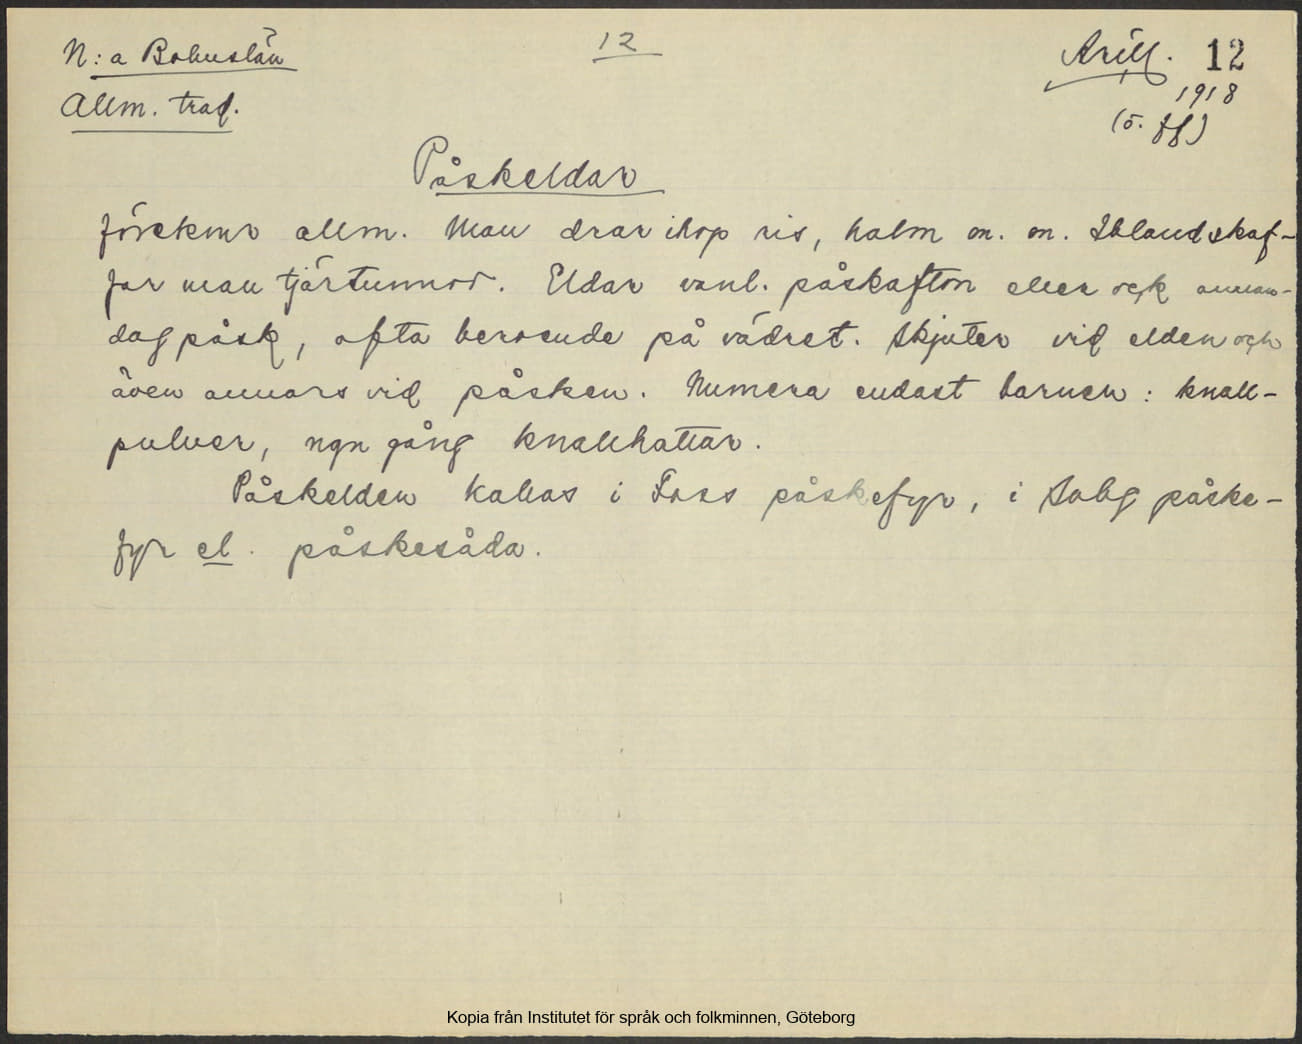 N:a Bohuslän
12
Arill. 12
Allm. trad.
1918
(ö. ff)
Påskeldar
förekomr allm. Man drar ihop ris, halm m. m. Ibland skaf-
far man tjärtunnor. Eldar vanl. påskafton eller ock annan-
dag påsk, ofta beroende på vädret. Skjuter vid elden och
även annars vid påsken. Numera endast barnen: knall-
pulver, ngn gång knallhattar.
Påskelden kallas i Foss påskefyr, i påske-
fyr el. påskesåda.
Kopia från Institutet för språk och folkminnen, Göteborg